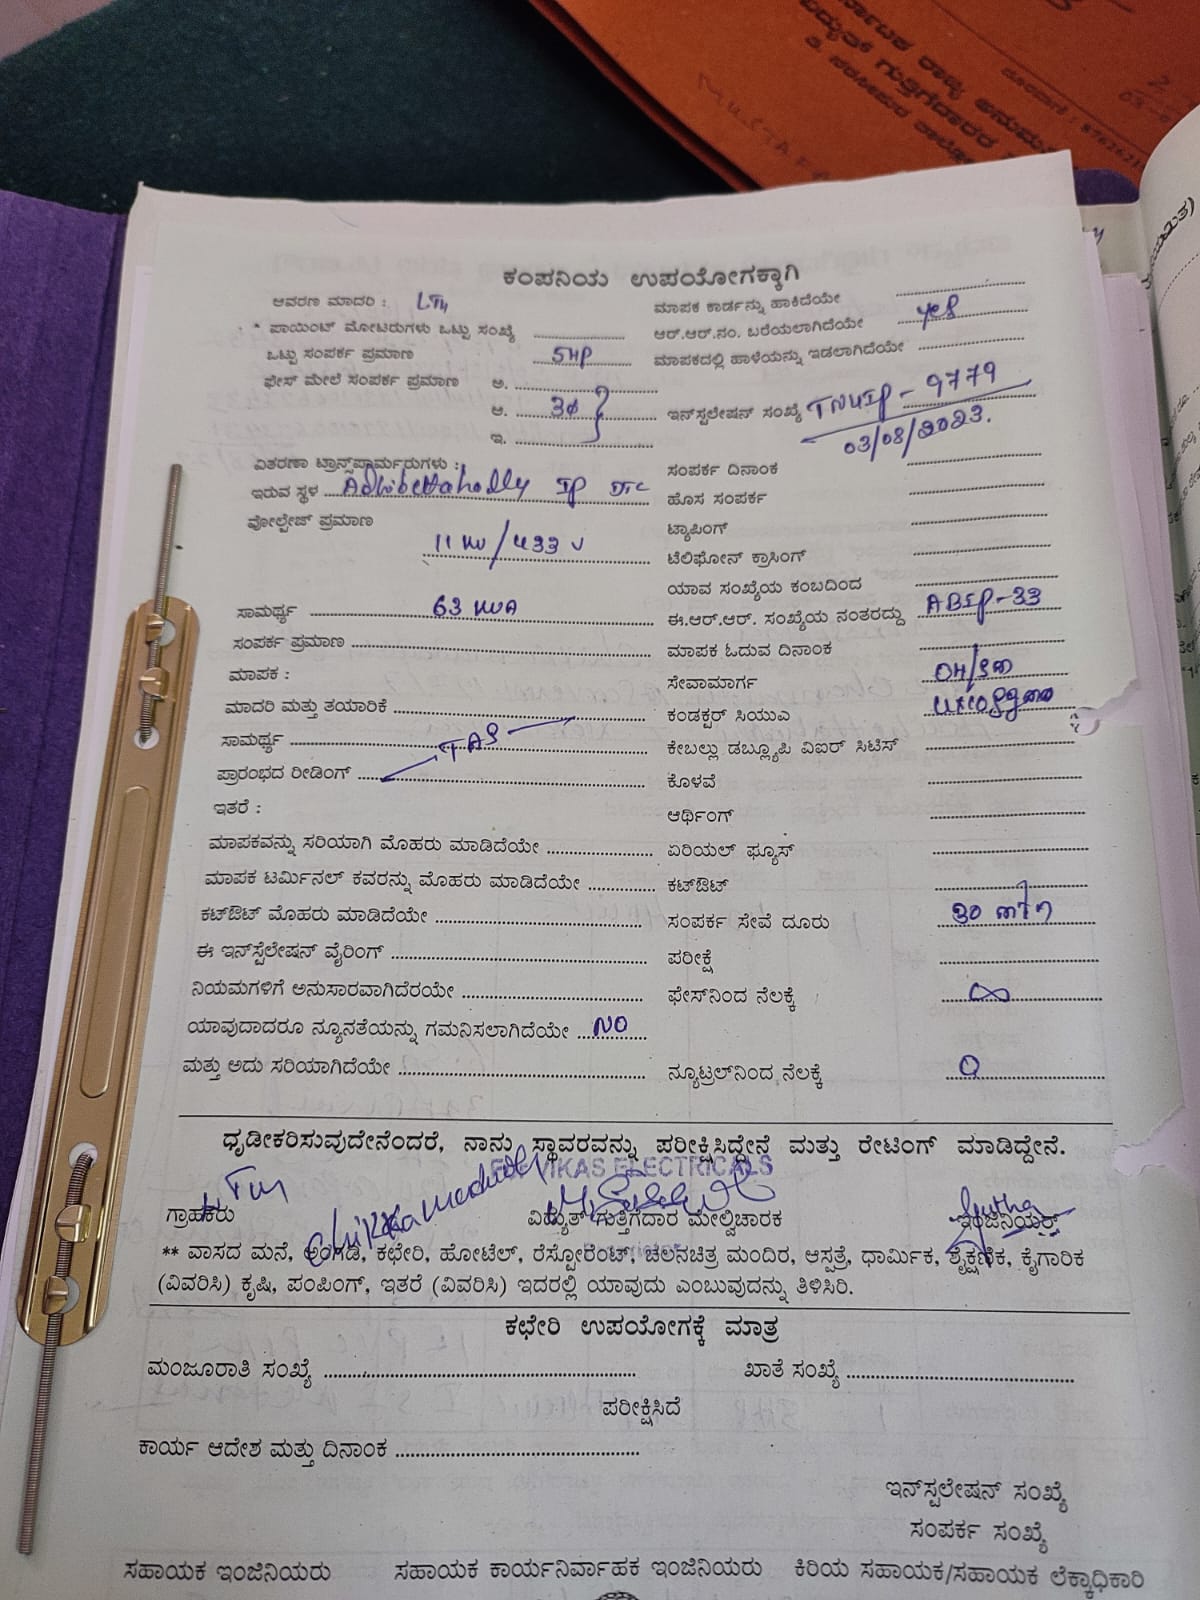 ರ್ನಾಟಕ ರಾಜ್ಯ ಅನುಮ
ವಿದ್ಯುತ್ ಗುತ್ತಿಗೆದಾರರ
ಕಂಪನಿಯ ಉಪಯೋಗಕ್ಕಾಗಿ
ಆವರಣ ಮಾದರಿ : LT4 ಮಾಪಕ ಕಾರ್ಡನ್ನು ಹಾಕಿದೆಯೇ
* ಪಾಯಿಂಟ್ ಮೋಟರುಗಳು ಒಟ್ಟು ಸಂಖ್ಯೆ ಆರ್.ಆರ್.ನಂ. ಬರೆಯಲಾಗಿದೆಯೇ yes
ಒಟ್ಟು ಸಂಪರ್ಕ ಪ್ರಮಾಣ 5HP ಮಾಪಕದಲ್ಲಿ ಹಾಳೆಯನ್ನು ಇಡಲಾಗಿದೆಯೇ
ಫೇಸ್ ಮೇಲೆ ಸಂಪರ್ಕ ಪ್ರಮಾಣ ಅ.
ಆ. 3ϕ ಇನ್‌ಸ್ಟಲೇಷನ್ ಸಂಖ್ಯೆ TNUIP - 9779
ಇ. 03/08/2023.
ವಿತರಣಾ ಟ್ರಾನ್ಸ್‌ಫಾರ್ಮರುಗಳು : ಸಂಪರ್ಕ ದಿನಾಂಕ
ಇರುವ ಸ್ಥಳ Adhibettahally IP DTC ಹೊಸ ಸಂಪರ್ಕ
ವೋಲ್ಟೇಜ್ ಪ್ರಮಾಣ ಟ್ಯಾಪಿಂಗ್
11 KV / 433 V ಟೆಲಿಫೋನ್ ಕ್ರಾಸಿಂಗ್
ಯಾವ ಸಂಖ್ಯೆಯ ಕಂಬದಿಂದ
ಸಾಮರ್ಥ್ಯ 63 KVA ಈ.ಆರ್.ಆರ್. ಸಂಖ್ಯೆಯ ನಂತರದ್ದು ABIP-33
ಸಂಪರ್ಕ ಪ್ರಮಾಣ ಮಾಪಕ ಓದುವ ದಿನಾಂಕ
ಮಾಪಕ : ಸೇವಾಮಾರ್ಗ
ಮಾದರಿ ಮತ್ತು ತಯಾರಿಕೆ ಕಂಡಕ್ಟರ್ ಸಿಯುವಿ
ಸಾಮರ್ಥ್ಯ TAS ಕೇಬಲ್ಲು ಡಬ್ಲ್ಯೂಪಿ ವಿಐರ್ ಸಿಟಿಸ್
ಪ್ರಾರಂಭದ ರೀಡಿಂಗ್ ಕೊಳವೆ
ಇತರೆ : ಆರ್ಥಿಂಗ್
ಮಾಪಕವನ್ನು ಸರಿಯಾಗಿ ಮೊಹರು ಮಾಡಿದೆಯೇ ಏರಿಯಲ್ ಫ್ಯೂಸ್
ಮಾಪಕ ಟರ್ಮಿನಲ್ ಕವರನ್ನು ಮೊಹರು ಮಾಡಿದೆಯೇ ಕಟ್‌ಔಟ್
ಕಟ್‌ಔಟ್ ಮೊಹರು ಮಾಡಿದೆಯೇ ಸಂಪರ್ಕ ಸೇವೆ ದೂರು 30
ಈ ಇನ್‌ಸ್ಟೆಲೇಷನ್ ವೈರಿಂಗ್ ಪರೀಕ್ಷೆ
ನಿಯಮಗಳಿಗೆ ಅನುಸಾರವಾಗಿದೆರಯೇ ಫೇಸ್‌ನಿಂದ ನೆಲಕ್ಕೆ ∞
ಯಾವುದಾದರೂ ನ್ಯೂನತೆಯನ್ನು ಗಮನಿಸಲಾಗಿದೆಯೇ NO
ಮತ್ತು ಅದು ಸರಿಯಾಗಿದೆಯೇ ನ್ಯೂಟ್ರಲ್‌ನಿಂದ ನೆಲಕ್ಕೆ 0
ಧೃಡೀಕರಿಸುವುದೇನೆಂದರೆ, ನಾನು ಸ್ಥಾವರವನ್ನು ಪರೀಕ್ಷಿಸಿದ್ದೇನೆ ಮತ್ತು ರೇಟಿಂಗ್ ಮಾಡಿದ್ದೇನೆ.
VIKAS ELECTRICALS
LTM
ಗ್ರಾಹಕರು ವಿದ್ಯುತ್ ಗುತ್ತಿಗೆದಾರ ಮೇಲ್ವಿಚಾರಕ ಇಂಜಿನಿಯರ್
** ವಾಸದ ಮನೆ, ಅಂಗಡಿ, ಕಛೇರಿ, ಹೋಟೆಲ್, ರೆಸ್ಟೋರೆಂಟ್, ಚಲನಚಿತ್ರ ಮಂದಿರ, ಆಸ್ಪತ್ರೆ, ಧಾರ್ಮಿಕ, ಶೈಕ್ಷಣಿಕ, ಕೈಗಾರಿಕ
(ವಿವರಿಸಿ) ಕೃಷಿ, ಪಂಪಿಂಗ್, ಇತರೆ (ವಿವರಿಸಿ) ಇದರಲ್ಲಿ ಯಾವುದು ಎಂಬುವುದನ್ನು ತಿಳಿಸಿರಿ.
ಕಛೇರಿ ಉಪಯೋಗಕ್ಕೆ ಮಾತ್ರ
ಮಂಜೂರಾತಿ ಸಂಖ್ಯೆ ಖಾತೆ ಸಂಖ್ಯೆ
ಪರೀಕ್ಷಿಸಿದೆ
ಕಾರ್ಯ ಆದೇಶ ಮತ್ತು ದಿನಾಂಕ
ಇನ್‌ಸ್ಟಲೇಷನ್ ಸಂಖ್ಯೆ
ಸಂಪರ್ಕ ಸಂಖ್ಯೆ
ಸಹಾಯಕ ಇಂಜಿನಿಯರು ಸಹಾಯಕ ಕಾರ್ಯನಿರ್ವಾಹಕ ಇಂಜಿನಿಯರು ಕಿರಿಯ ಸಹಾಯಕ/ಸಹಾಯಕ ಲೆಕ್ಕಾಧಿಕಾರಿ